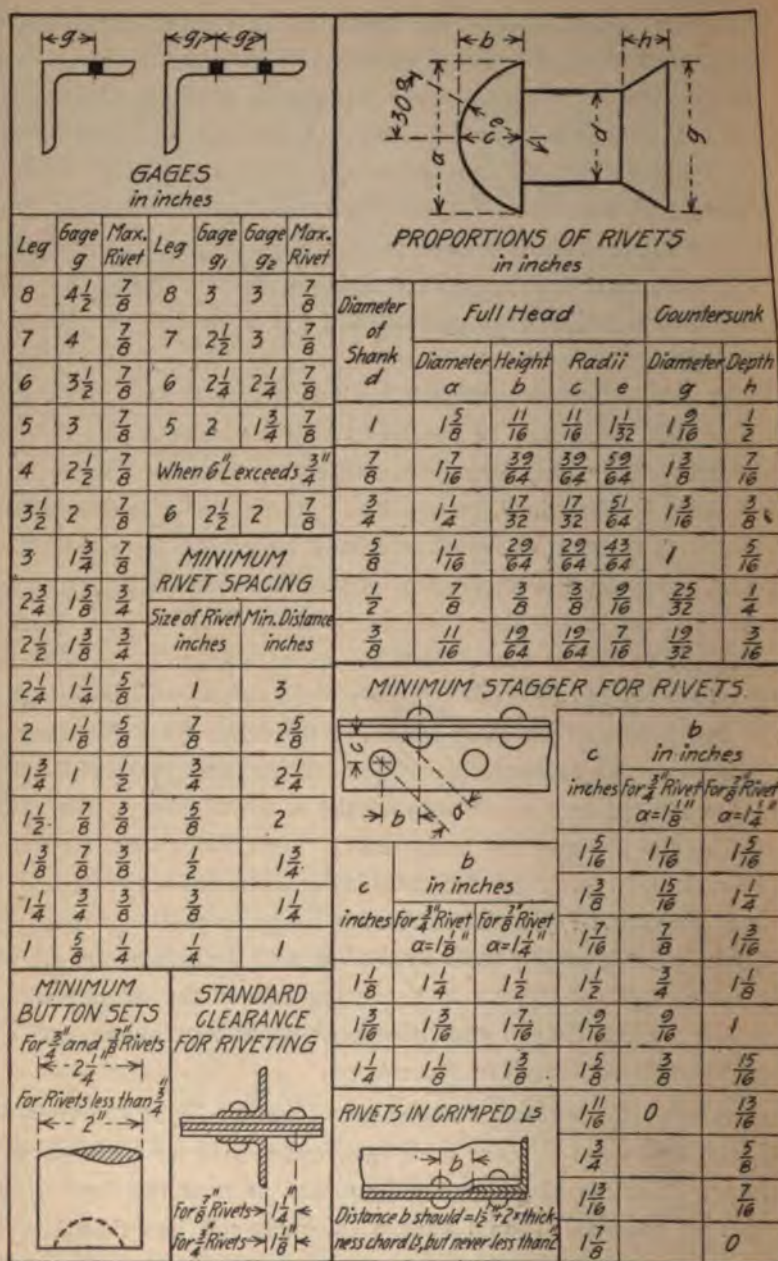 g g₁ g₂
GAGES
in inches
Leg Gage g Max. Rivet Leg Gage g₁ Gage g₂ Max. Rivet
8 4 1/2 7/8 8 3 3 7/8
7 4 7/8 7 2 1/2 3 7/8
6 3 1/2 7/8 6 2 1/4 2 1/4 7/8
5 3 7/8 5 2 1 3/4 7/8
4 2 1/2 7/8 When 6" L exceeds 3/4"
3 1/2 2 7/8 6 2 1/2 2 7/8
3 1 3/4 7/8
2 3/4 1 5/8 3/4
2 1/2 1 3/8 3/4
2 1/4 1 1/4 5/8
2 1 1/8 5/8
1 3/4 1 1/2
1 1/2 7/8 3/8
1 3/8 7/8 3/8
1 1/4 3/4 3/8
1 5/8 1/4
MINIMUM
RIVET SPACING
Size of Rivet inches Min. Distance inches
1 3
7/8 2 5/8
3/4 2 1/4
5/8 2
1/2 1 3/4
3/8 1 1/4
1/4 1
MINIMUM
BUTTON SETS
For 3/4" and 7/8" Rivets
2 1/4"
For Rivets less than 3/4"
2"
STANDARD
CLEARANCE
FOR RIVETING
For 7/8" Rivets 1 1/4"
For 3/4" Rivets 1 1/8"
b h
a e c d g
PROPORTIONS OF RIVETS
in inches
Diameter of Shank d Full Head Countersunk
Diameter a Height b Radii c e Diameter g Depth h
1 1 5/8 11/16 11/16 1 1/32 1 9/16 1/2
7/8 1 7/16 39/64 39/64 59/64 1 3/8 7/16
3/4 1 1/4 17/32 17/32 51/64 1 3/16 3/8
5/8 1 1/16 29/64 29/64 43/64 1 5/16
1/2 7/8 3/8 3/8 9/16 25/32 1/4
3/8 11/16 19/64 19/64 7/16 19/32 3/16
MINIMUM STAGGER FOR RIVETS
c b a
c inches b in inches
For 3/4" Rivet a=1 1/8" For 7/8" Rivet a=1 1/4"
1 1/8 1 1/4 1 1/2
1 3/16 1 3/16 1 7/16
1 1/4 1 1/8 1 3/8
c inches b in inches
For 3/4" Rivet a=1 1/8" For 7/8" Rivet a=1 1/4"
1 5/16 1 1/16 1 5/16
1 3/8 15/16 1 1/4
1 7/16 7/8 1 3/16
1 1/2 3/4 1 1/8
1 9/16 9/16 1
1 5/8 3/8 15/16
1 11/16 0 13/16
1 3/4 5/8
1 13/16 7/16
1 7/8 0
RIVETS IN CRIMPED Ls
b
Distance b should = 1 1/2" + 2 × thick-
ness chord Ls, but never less than 2"